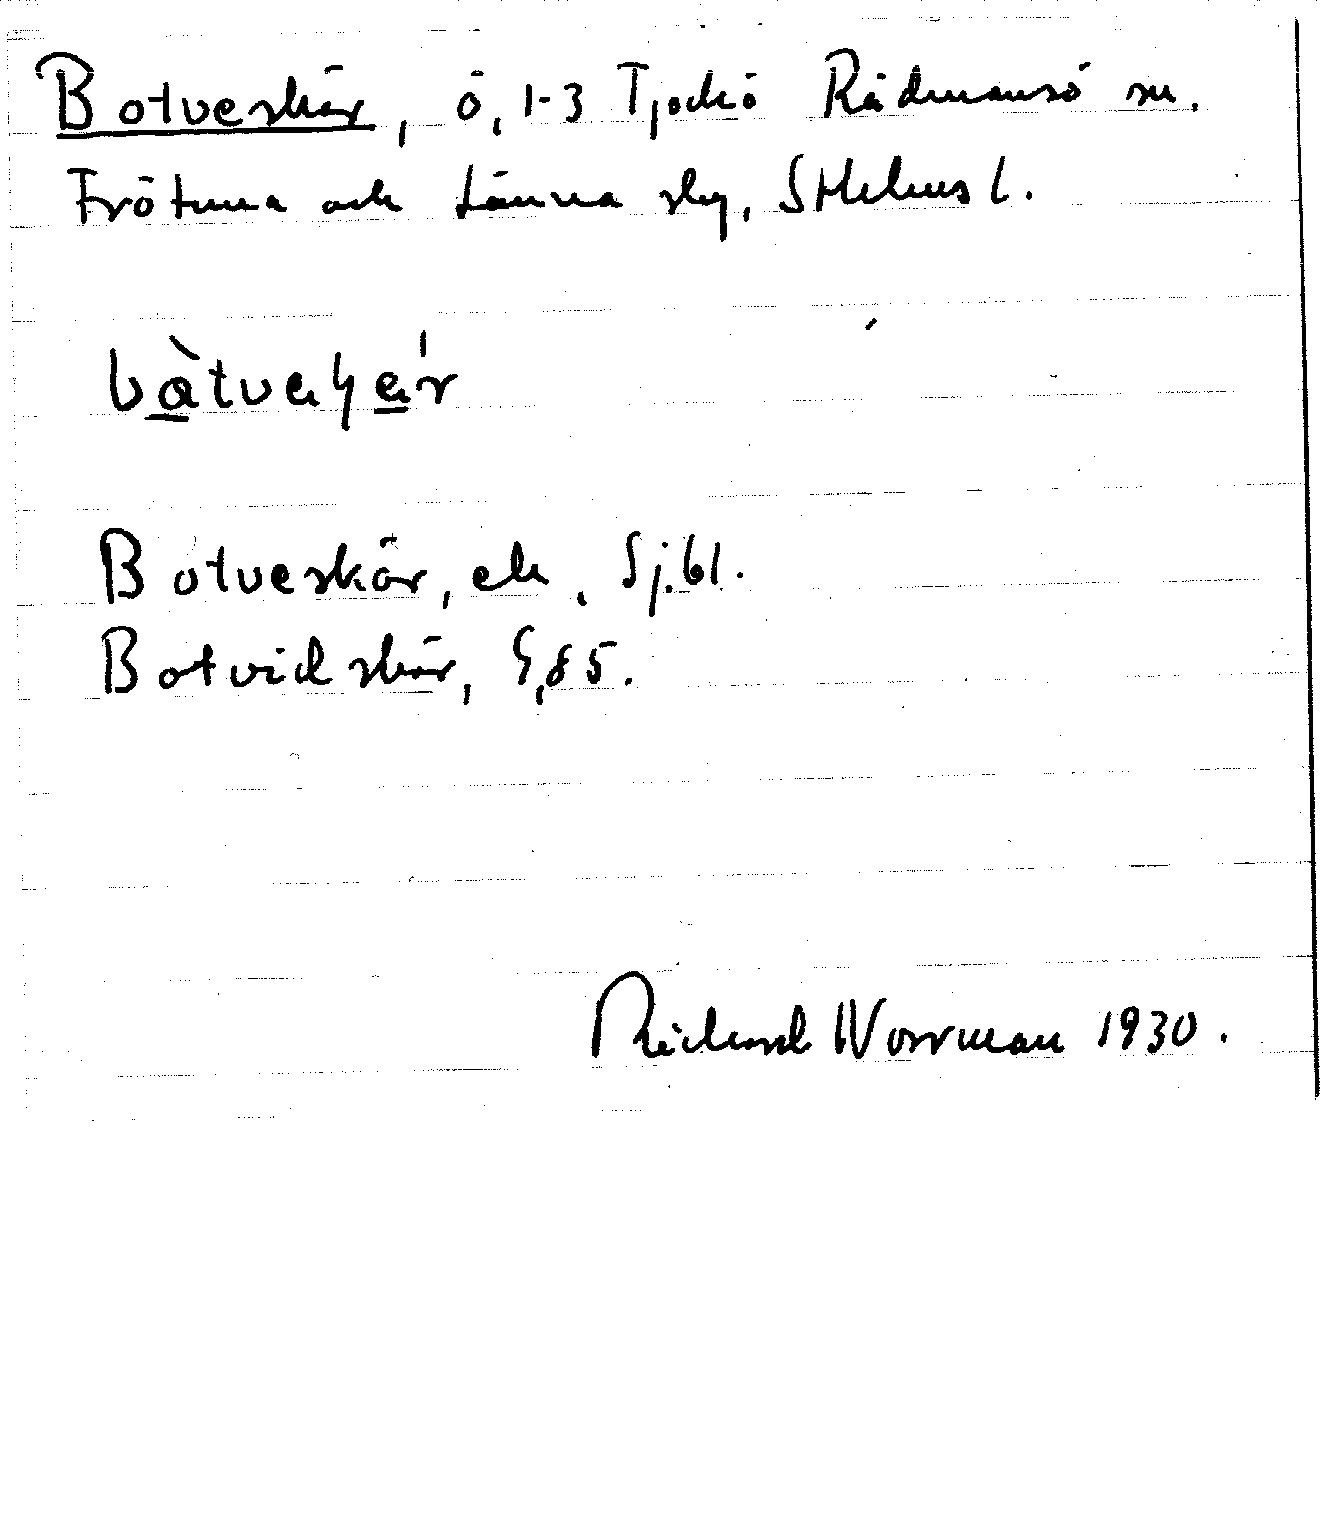 Botveskär, ö, 1-3 Tjockö Rådmansö sn.
Frötuna och Länna skg, Sthlms l.
Botveskär, ek., Sj.bl.
Botvidskär, G,85.
Richard Norrman 1930.